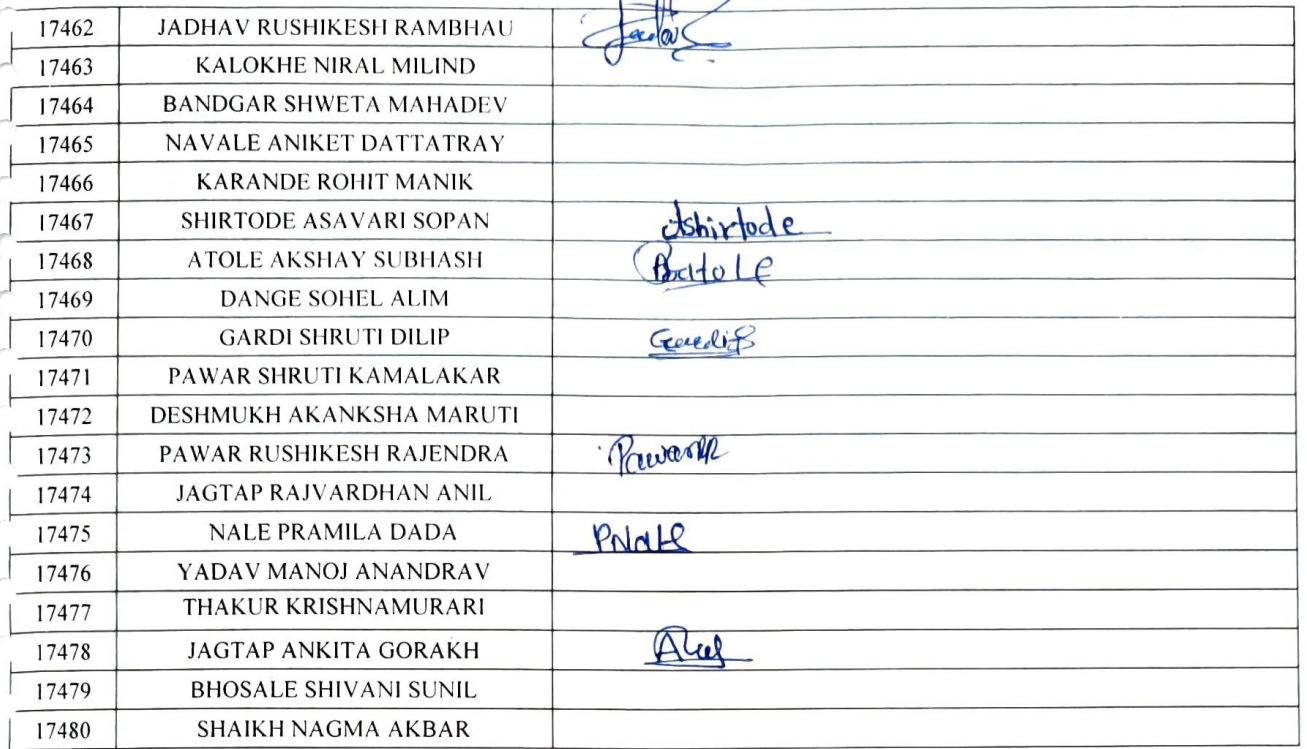 17462 JADHAV RUSHIKESH RAMBHAU
17463 KALOKHE NIRAL MILIND
17464 BANDGAR SHWETA MAHADEV
17465 NAVALE ANIKET DATTATRAY
17466 KARANDE ROHIT MANIK
17467 SHIRTODE ASAVARI SOPAN Ashirtode
17468 ATOLE AKSHAY SUBHASH
17469 DANGE SOHEL ALIM
17470 GARDI SHRUTI DILIP
17471 PAWAR SHRUTI KAMALAKAR
17472 DESHMUKH AKANKSHA MARUTI
17473 PAWAR RUSHIKESH RAJENDRA
17474 JAGTAP RAJVARDHAN ANIL
17475 NALE PRAMILA DADA PNale
17476 YADAV MANOJ ANANDRAV
17477 THAKUR KRISHNAMURARI
17478 JAGTAP ANKITA GORAKH
17479 BHOSALE SHIVANI SUNIL
17480 SHAIKH NAGMA AKBAR